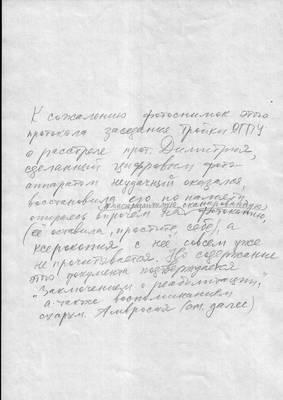 К сожалению фотоснимок этого
протокола заседания Тройки ОГПУ
о расстреле прот. Димитрия,
сделанный цифровым фото
аппаратом неудачный оказался,
восстановила его по памяти,
опираясь впрочем на фотокопию,
(её оставила, простите, себе), а
ксерокопия, с неё, совсем уже
не прочитывается. Но содержание
этого документа подтверждается
"Заключением о реабилитации,"
а также воспоминанием
схиарх. Амвросия (см. далее)